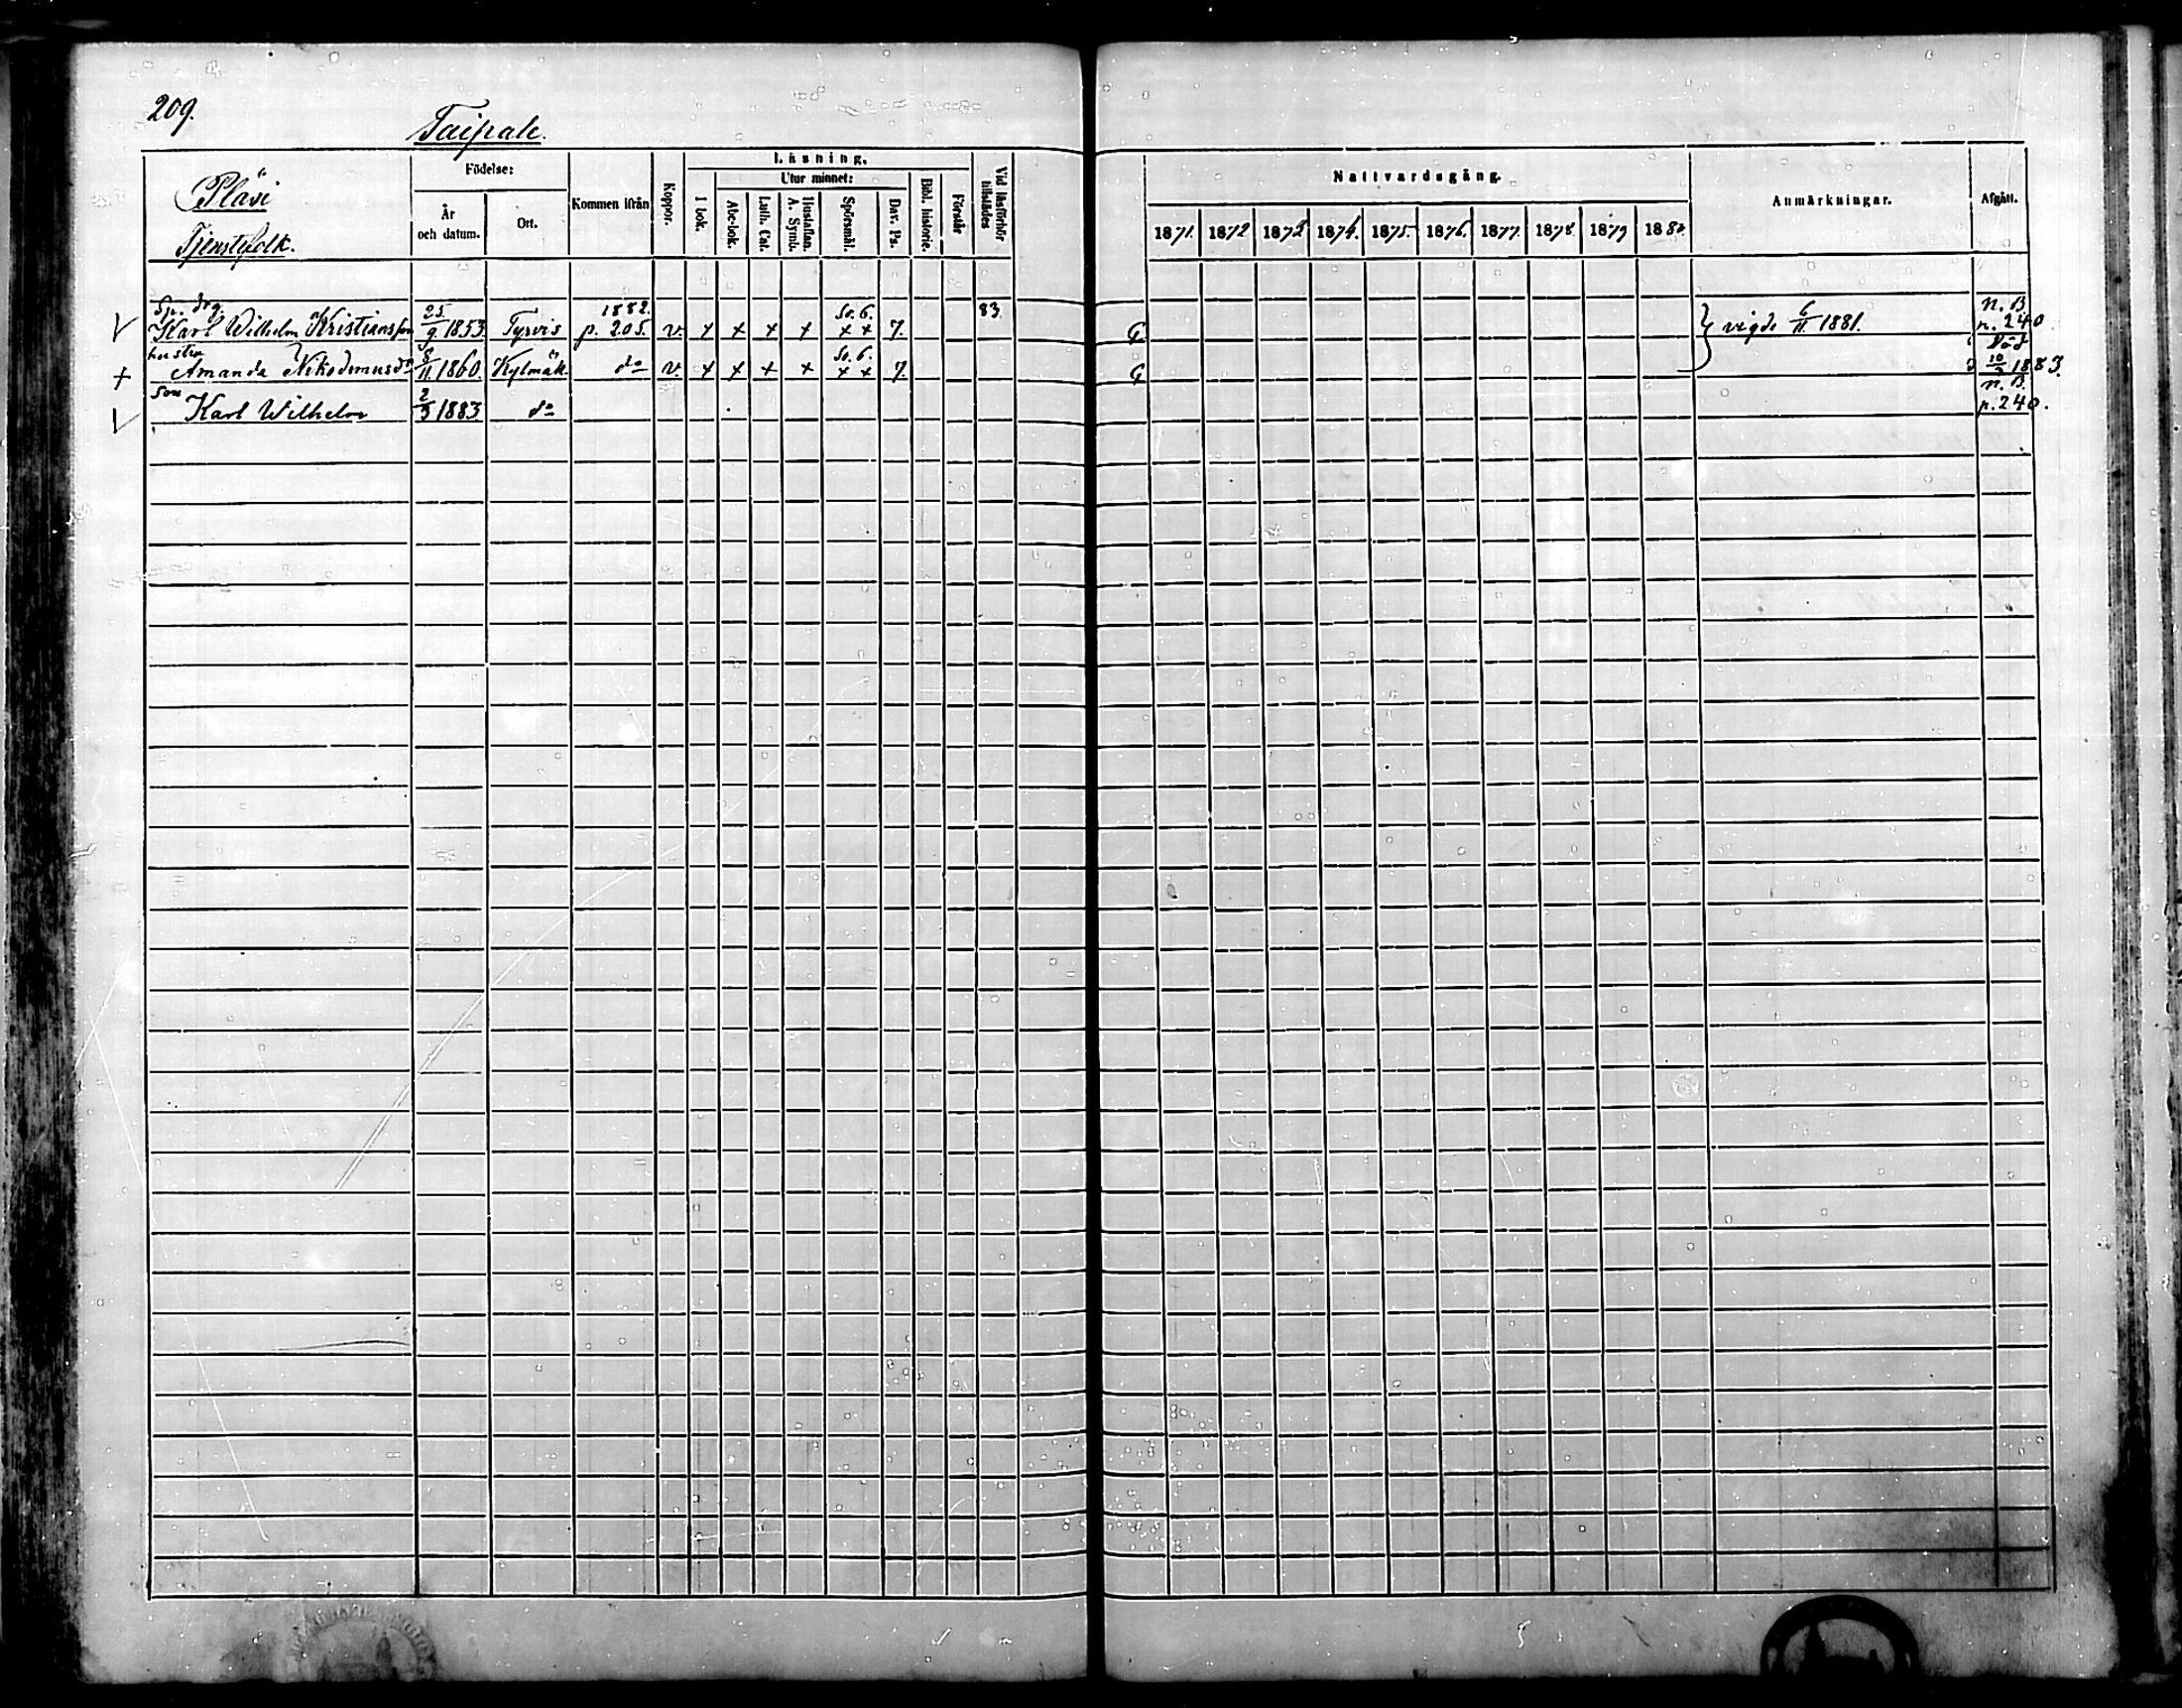 209.
Taipale.
Pläsi
Tjenstefolk.
Födelse:
År och datum.
Ort.
Kommen ifrån
Koppor.
Läsning.
I bok.
Utur minnet:
Abc-bok.
Luth. Cat.
Hustaflan. A. Symb.
Spörsmål.
Dav. Ps.
Bibl. historie.
Förstår
Vid läsförhör tillstädes
Nattvardsgång.
1871. 1872 1873 1874. 1875 1876. 1877. 1878 1879 1882
Anmärkningar.
Afgått.
Sp. drg. 25 1882. Sv. 6. 83. n. B.
√ Karl Wilhelm Kristiansson 9 1853 Tyrvis p. 205. v. × × × × × × 7. } vigde 6/11 1881. p. 240
hustru 8 Sv. 6. död
+ Amanda Nikodemusdr 11 1860. Kylmäk. do v. × × × × × × 7. 10 1883.
son 2 n. B.
√ Karl Wilhelm 3 1883 do p. 240.